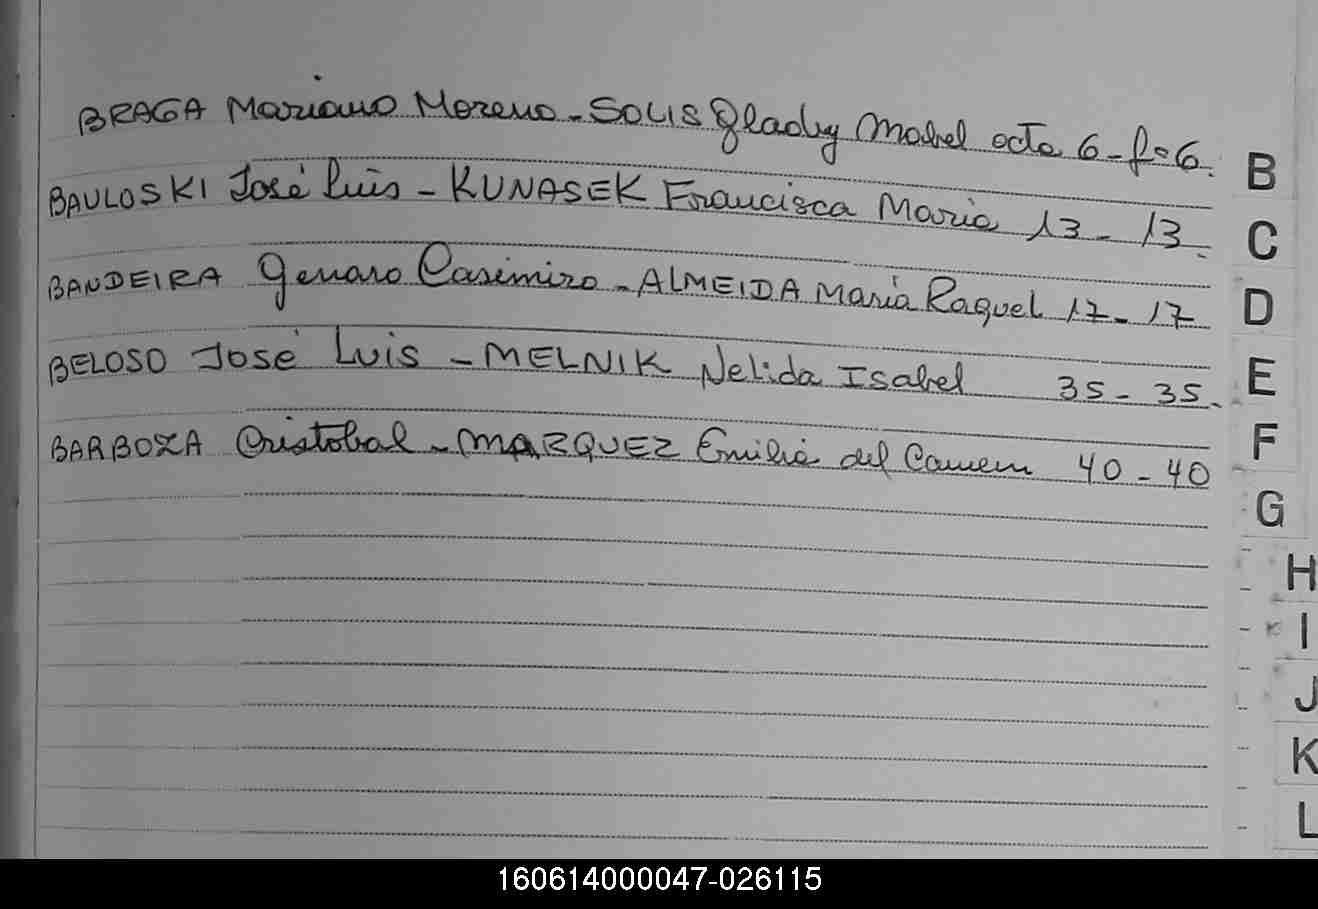 BRAGA Mariano Moreno - SOLIS Glady Mabel acta 6 - fº 6.
BAULOSKI José Luis - KUNASEK Francisca Maria 13 - 13.
BANDEIRA Genaro Casimiro - ALMEIDA María Raquel 17 - 17
BELOSO José Luis - MELNIK Nelida Isabel 35 - 35.
BARBOZA Cristobal - MARQUEZ Emilia del Carmen 40 - 40
B
C
D
E
F
G
H
I
J
K
L
160614000047-026115